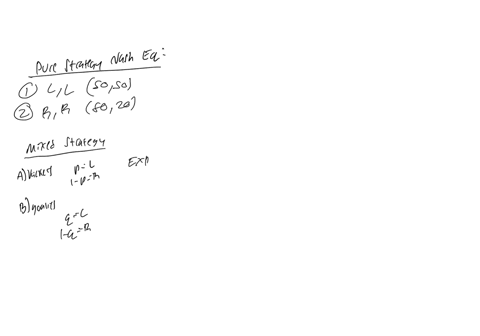 Pure Strategy Nash Eq:
① L, L (50, 50)
② R, R (80, 20)
Mixed Strategy
A) Kicker p = L Exp
1-p = R
B) goalie
q = L
1-q = R